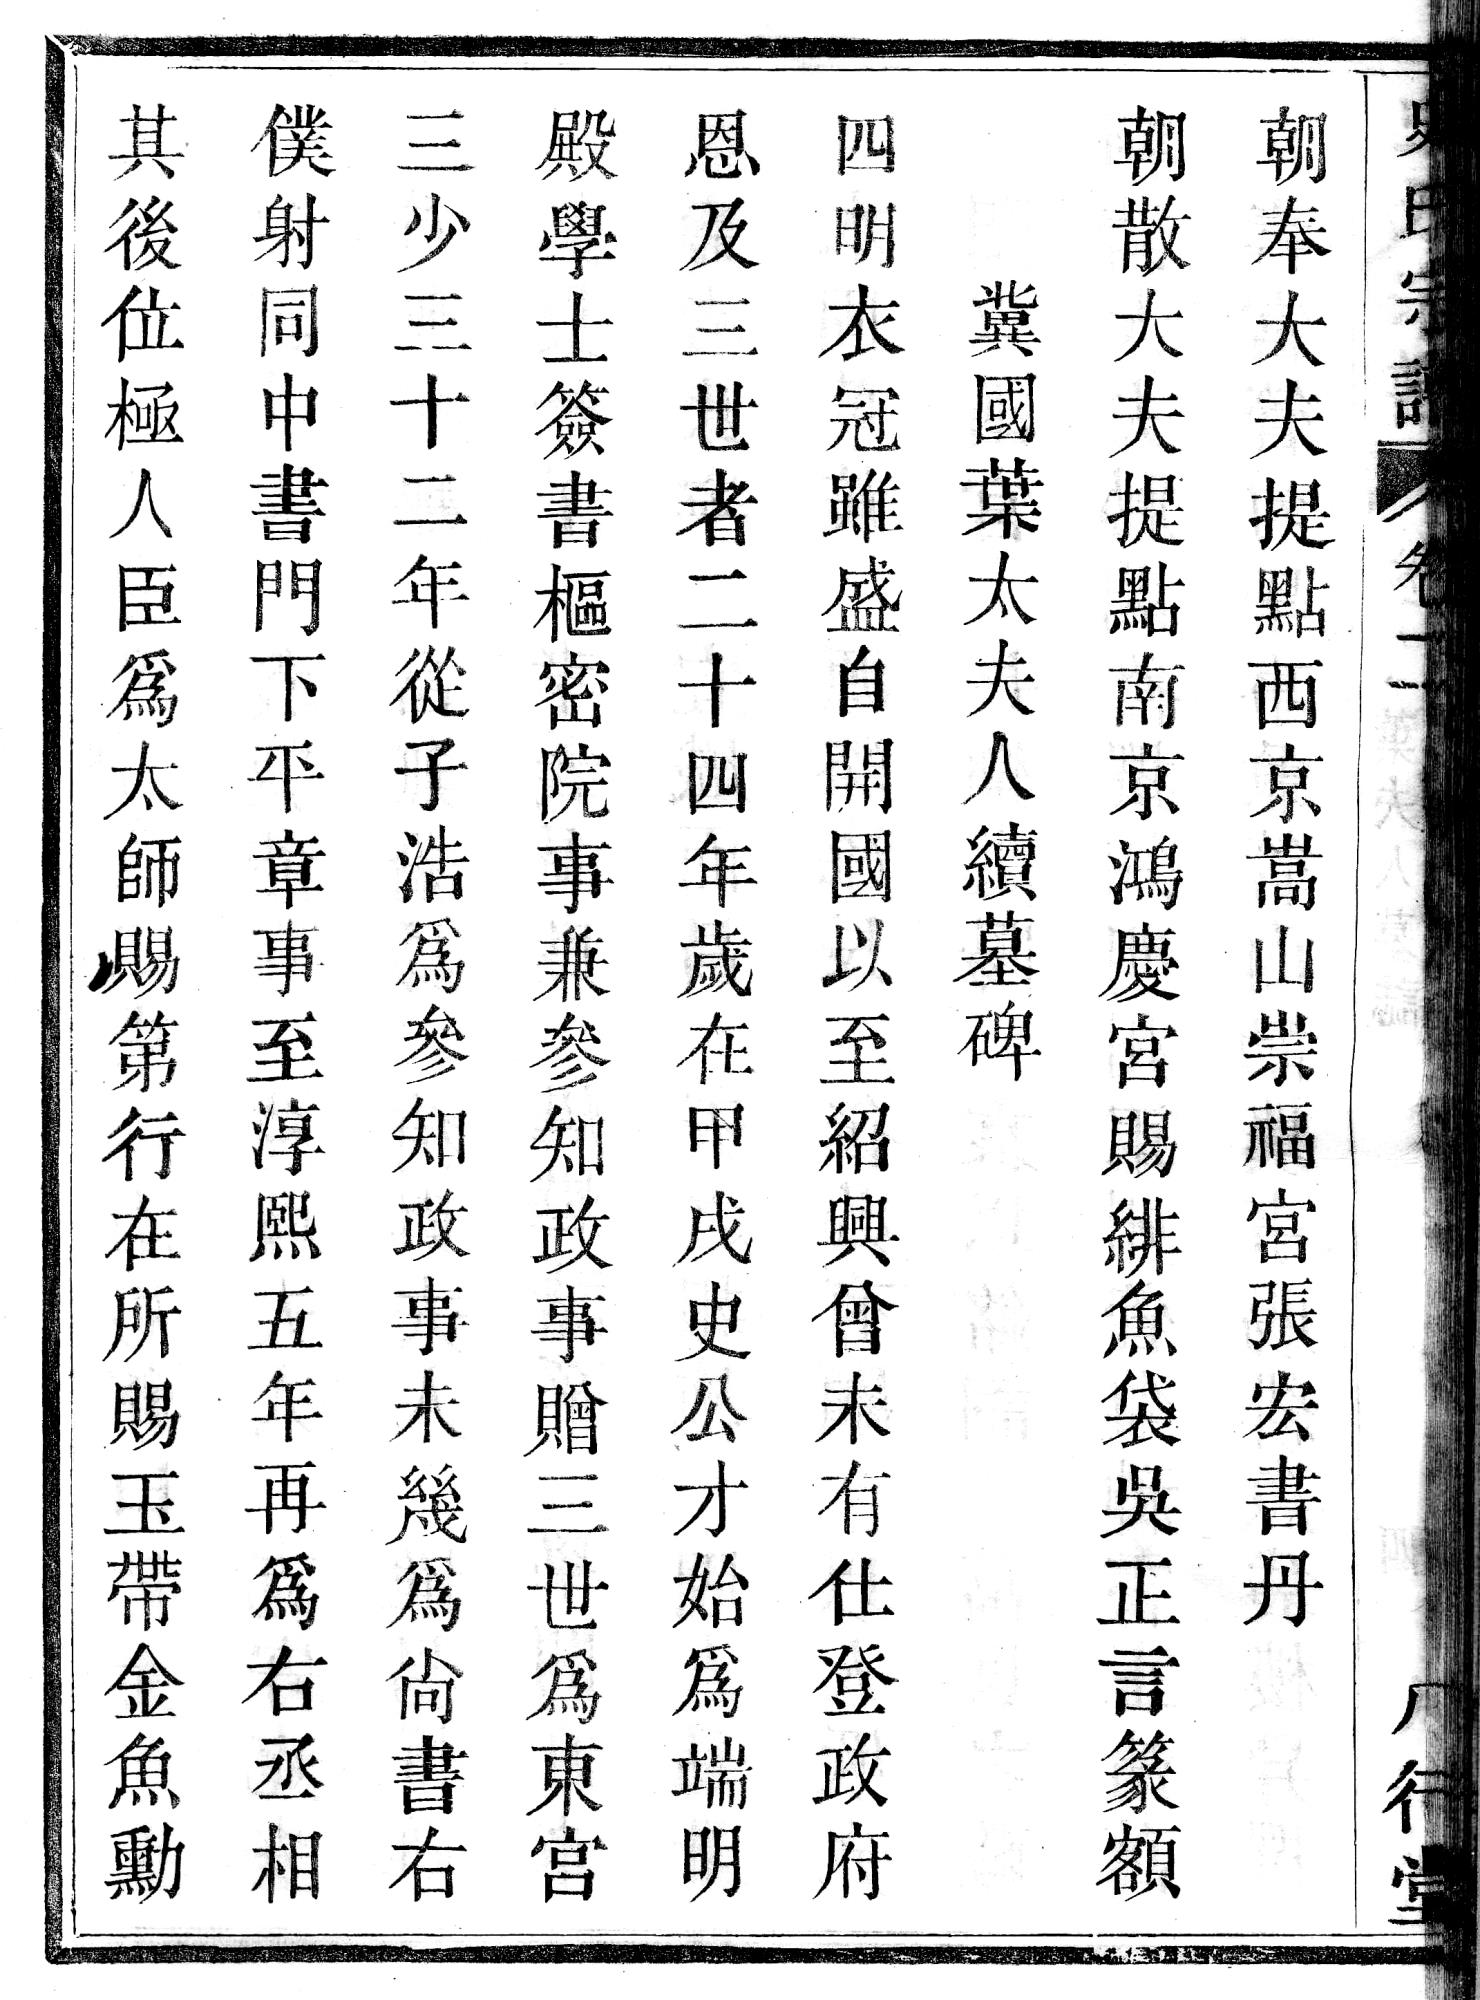 史氏宗譜 卷二 八行堂
朝奉大夫提點西京嵩山崇福宮張宏書丹
朝散大夫提點南京鴻慶宮賜緋魚袋吳正言篆額
冀國葉太夫人續墓碑
四明衣冠雖盛自開國以至紹興曾未有仕登政府
恩及三世者二十四年歲在甲戌史公才始爲端明
殿學士簽書樞密院事兼參知政事贈三世爲東宮
三少三十二年從子浩爲參知政事未幾爲尙書右
僕射同中書門下平章事至淳熙五年再爲右丞相
其後位極人臣爲太師賜第行在所賜玉帶金魚勳